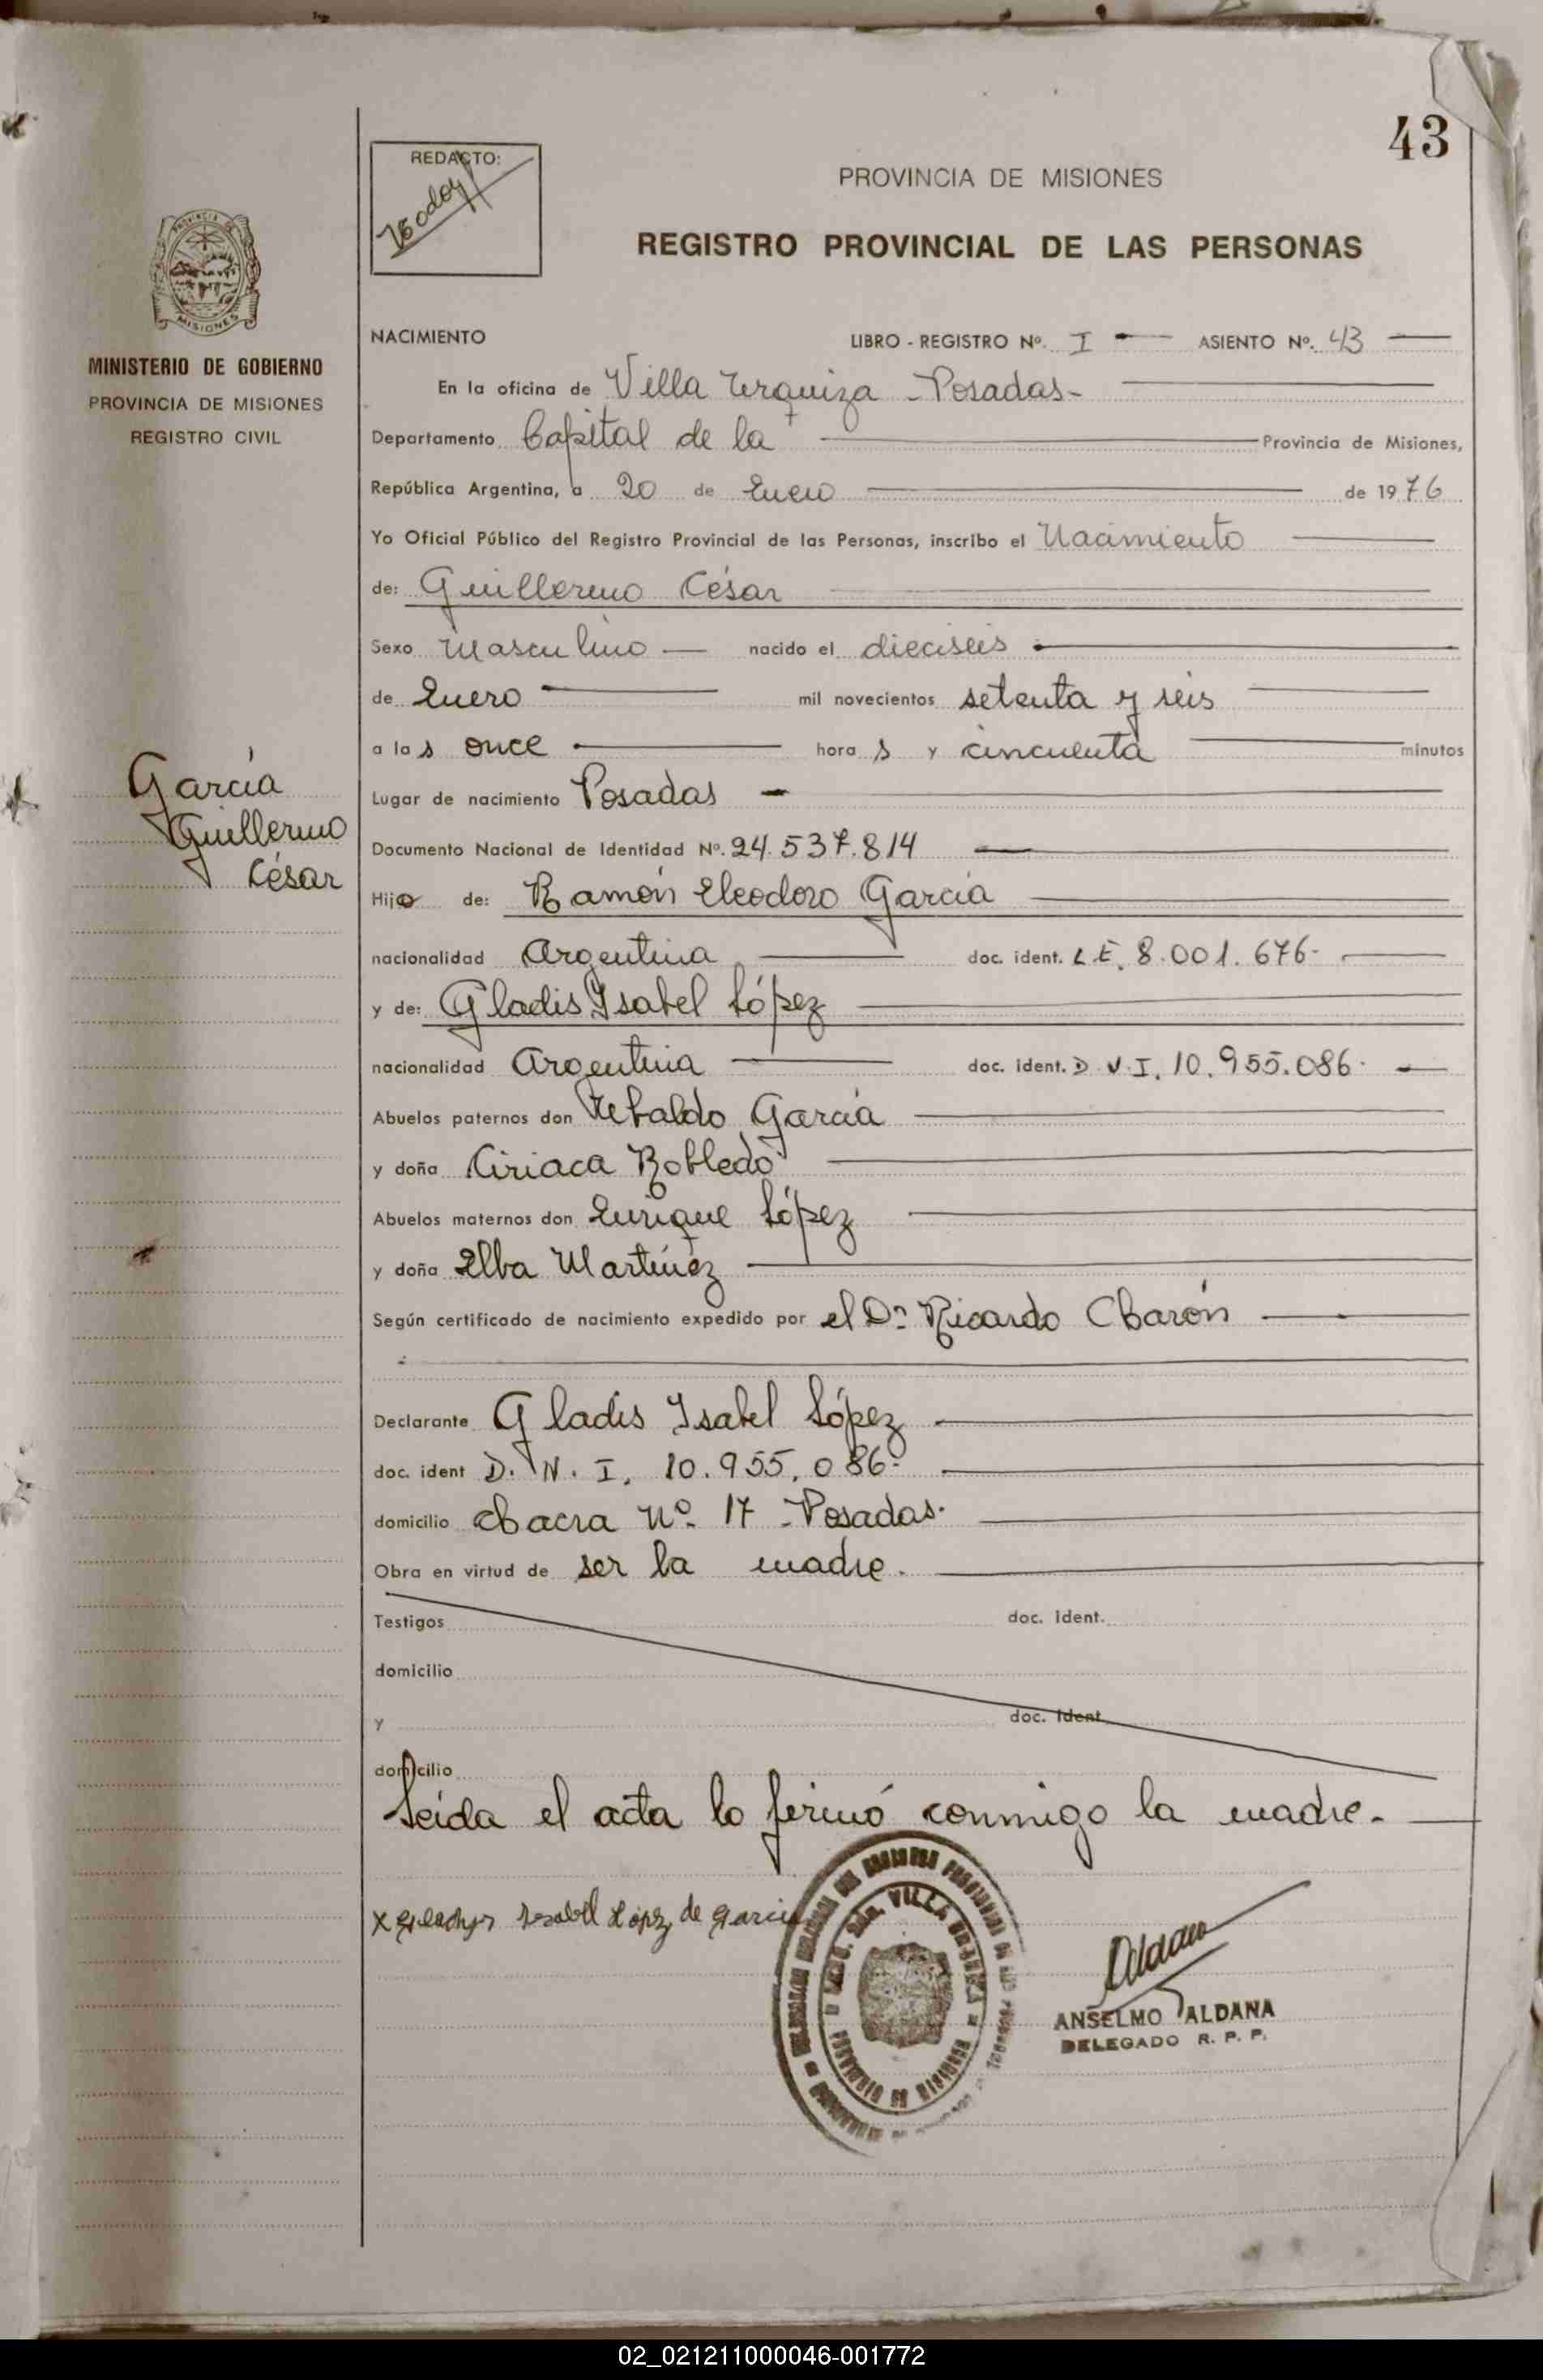 43
REDACTO:
PROVINCIA DE MISIONES
REGISTRO PROVINCIAL DE LAS PERSONAS
PROVINCIA DE
MISIONES
MINISTERIO DE GOBIERNO
PROVINCIA DE MISIONES
REGISTRO CIVIL
NACIMIENTO LIBRO - REGISTRO Nº. I ASIENTO Nº. 43
En la oficina de Villa Urquiza - Posadas-
Departamento Capital de la Provincia de Misiones,
República Argentina, a 20 de Enero de 1976
Yo Oficial Público del Registro Provincial de las Personas, inscribo el Nacimiento
de: Guillermo César
Sexo Masculino nacido el dieciseis
de Enero mil novecientos setenta y seis
a las once horas y cincuenta minutos
García
Guillermo
César
Lugar de nacimiento Posadas
Documento Nacional de Identidad Nº. 24.537.814
Hijo de: Ramón Eleodoro García
nacionalidad Argentina doc. ident. L.E. 8.001.676-
y de: Gladis Ysabel López
nacionalidad Argentina doc. ident. D.N.I. 10.955.086-
Abuelos paternos don Ubaldo García
y doña Ciriaca Robledo
Abuelos maternos don Enrique López
y doña Elba Martínez
Según certificado de nacimiento expedido por el Dr. Ricardo Barón
Declarante Gladis Ysabel López
doc. ident D.N.I. 10.955.086-
domicilio Chacra Nº 17 - Posadas-
Obra en virtud de ser la madre.
Testigos doc. ident.
domicilio
y doc. ident.
domicilio
Leída el acta lo firmó conmigo la madre.
x Isabel López de Garcia
VILLA URQUIZA
PROVINCIA DE MISIONES
ANSELMO ALDANA
DELEGADO R. P. P.
02_021211000046-001772